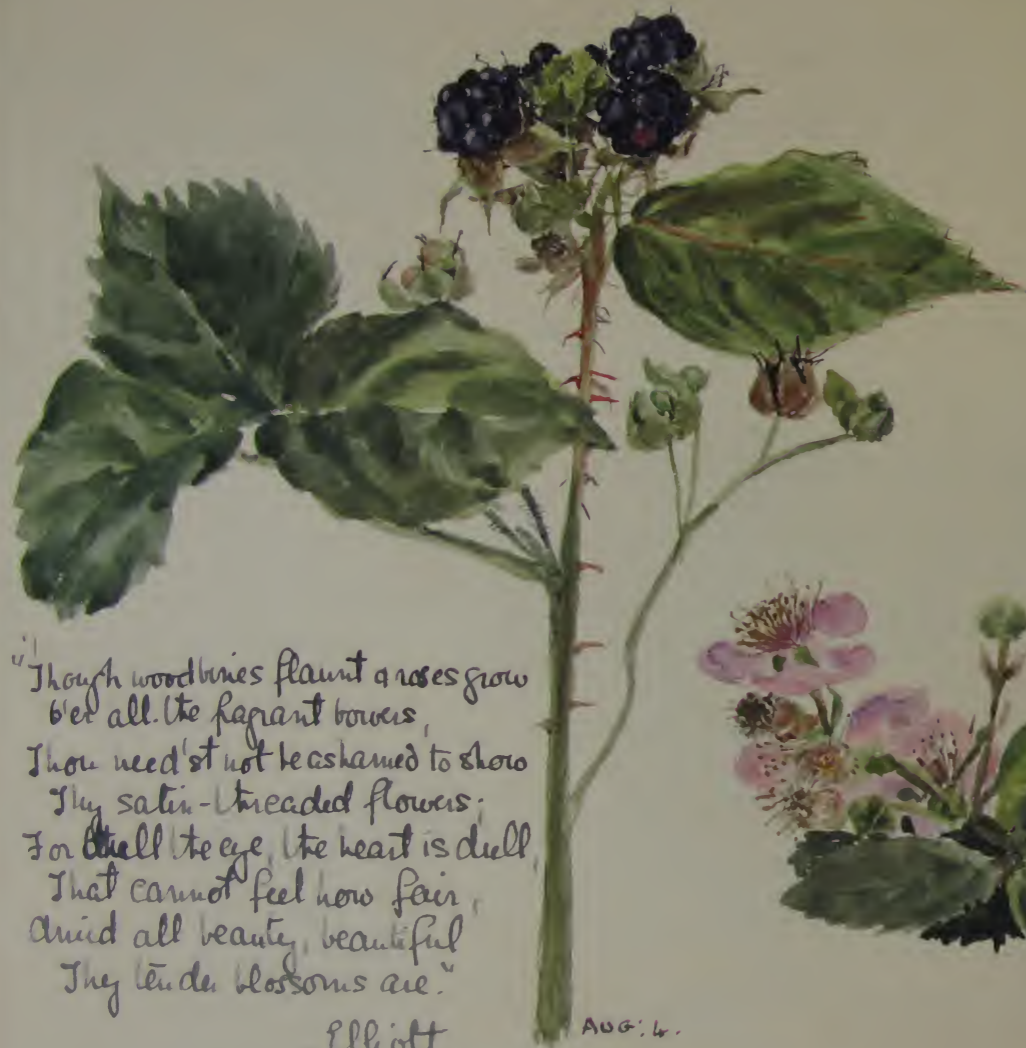 "Though woodbines flaunt & roses grow
O'er all the fragrant bowers,
Thou need'st not be ashamed to show
Thy satin-threaded flowers;
For dull the eye, the heart is dull,
That cannot feel how fair,
Amid all beauty, beautiful
Thy tender blossoms are."
Elliott
AUG: 4.